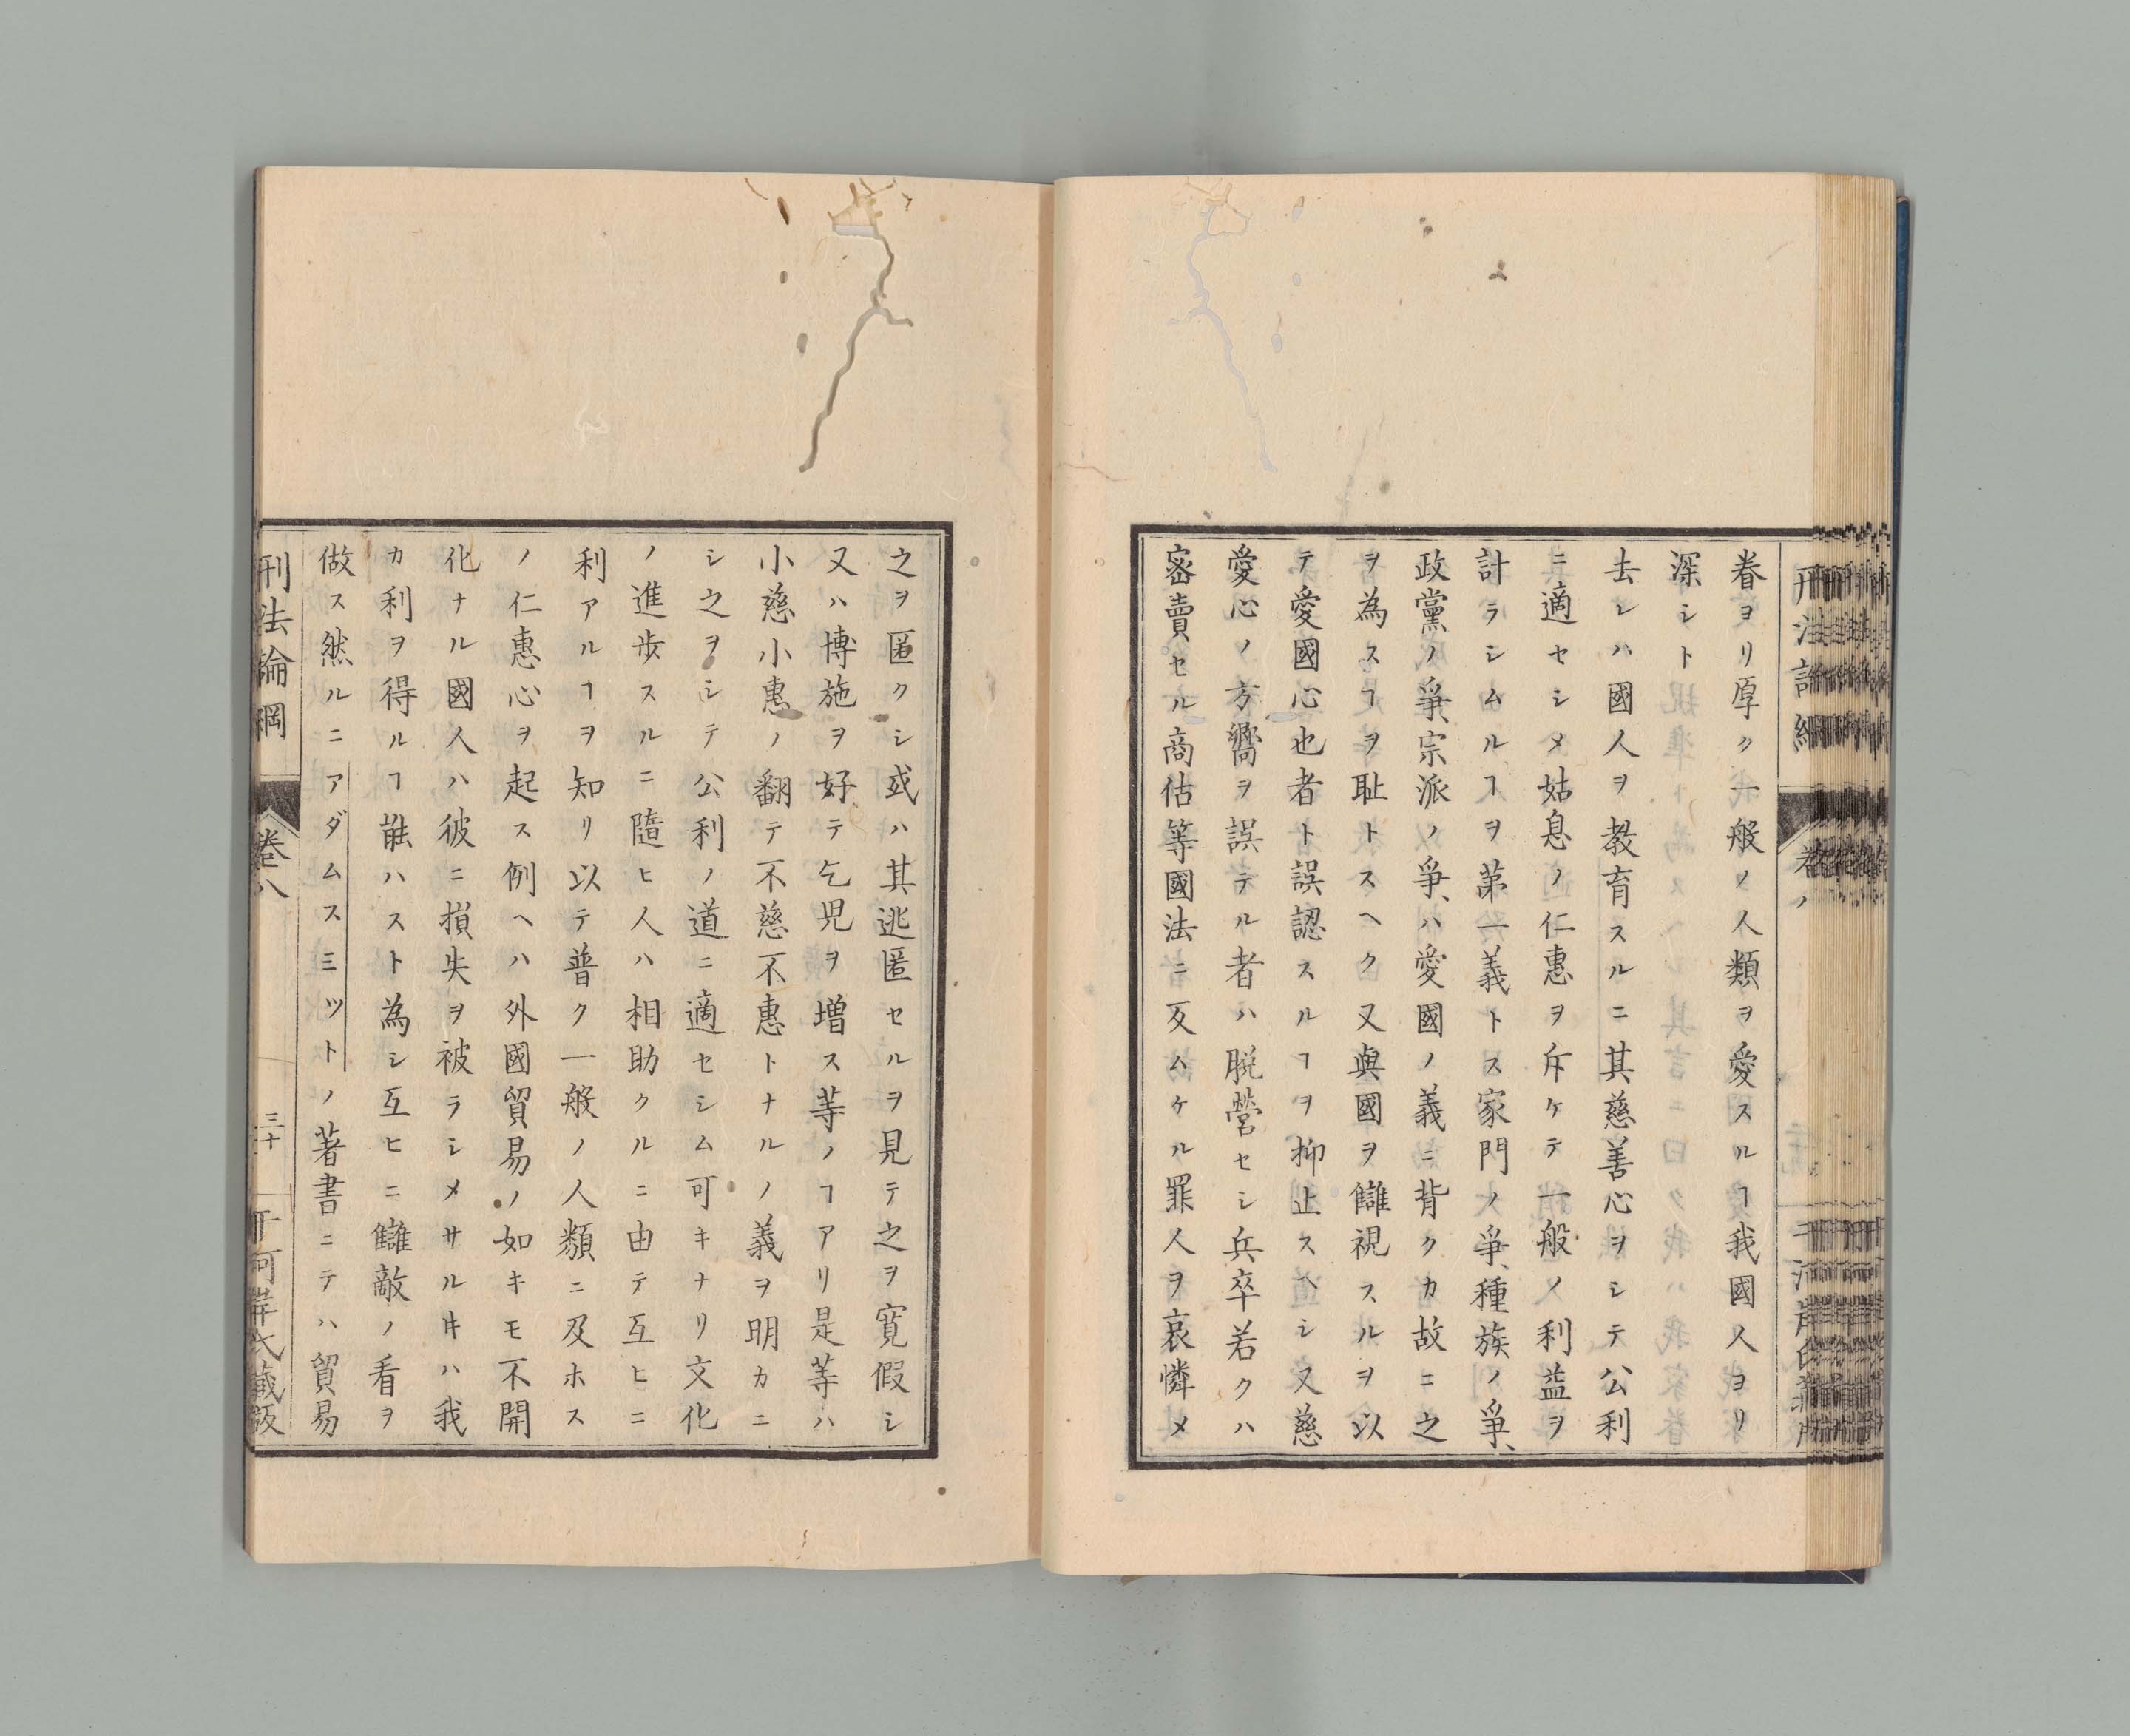 眷ヨリ厚ク一般ノ人類ヲ愛スルヿ我國人ヨリ
深シト
去レハ國人ヲ教育スルニ其慈善心ヲシテ公利
ニ適セシメ姑息ノ仁惠ヲ斥ケテ一般ノ利益ヲ
計ラシムルヿヲ第一義トス家門ノ爭、種族ノ爭、
政黨ノ爭、宗派ノ爭、ハ愛國ノ義ニ背クカ故ニ之
ヲ為スヿヲ耻トスヘク又與國ヲ讎視スルヲ以
テ愛國心也者ト誤認スルヿヲ抑止スヘシ又慈
愛心ノ方嚮ヲ誤テル者ハ脱營セシ兵卒若クハ
密賣セル商估等國法ニ亙ムケル罪人ヲ哀憐メ
之ヲ匿クシ或ハ其逃匿セルヲ見テ之ヲ寛假シ
又ハ博施ヲ好テ乞児ヲ増ス等ノヿアリ是等ハ
小慈小惠ノ翻テ不慈不惠トナルノ義ヲ明カニ
シ之ヲシテ公利ノ道ニ適セシム可キナリ文化
ノ進歩スルニ隨ヒ人ハ相助クルニ由テ互ヒニ
利アルヿヲ知リ以テ普ク一般ノ人類ニ及ホス
ノ仁惠心ヲ起ス例ヘハ外國貿易ノ如キモ不開
化ナル國人ハ彼ニ損失ヲ被ラシメサル𪜈ハ我
カ利ヲ得ルヿ能ハスト為シ互ヒニ讎敵ノ看ヲ
做ス然ルニアダムスミットノ著書ニテハ貿易
刑法論綱
卷八
三十